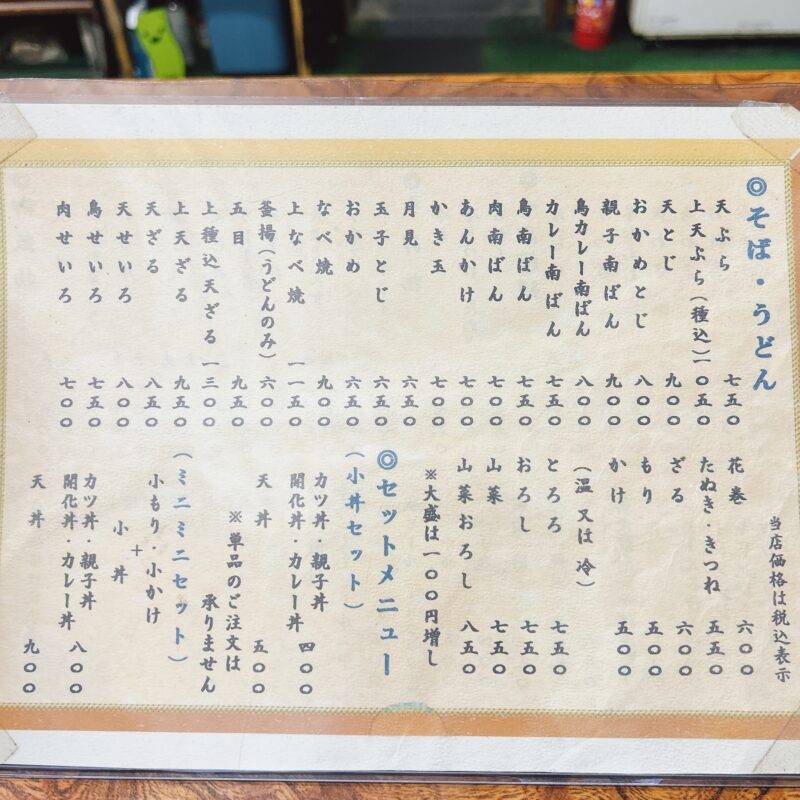 ◎そば・うどん
天ぷら 七五〇
上天ぷら(種込) 一〇五〇
天とじ 九〇〇
おかめとじ 八〇〇
親子南ばん 九〇〇
鳥カレー南ばん 八〇〇
カレー南ばん 七五〇
鳥南ばん 七五〇
肉南ばん 七〇〇
あんかけ 七〇〇
かき玉 七〇〇
月見 六五〇
玉子とじ 六五〇
おかめ 六五〇
なべ焼 九〇〇
上なべ焼 一一五〇
釜揚(うどんのみ) 六〇〇
五目 九五〇
上種込天ざる 一三〇〇
上天ざる 九五〇
天ざる 八五〇
天せいろ 八〇〇
鳥せいろ 七五〇
肉せいろ 七〇〇
当店価格は税込表示
花巻 六〇〇
たぬき・きつね 五五〇
ざる 六〇〇
もり 五五〇
かけ 五〇〇
(温又は冷)
とろろ 七五〇
おろし 七五〇
山菜 七五〇
山菜おろし 八五〇
※大盛は一〇〇円増し
◎セットメニュー
(小丼セット)
カツ丼・親子丼
開化丼・カレー丼 四〇〇
天丼 五〇〇
※単品のご注文は
承りません
(ミニミニセット)
小もり・小かけ
+
小丼
カツ丼・親子丼
開化丼・カレー丼 八〇〇
天丼 九〇〇